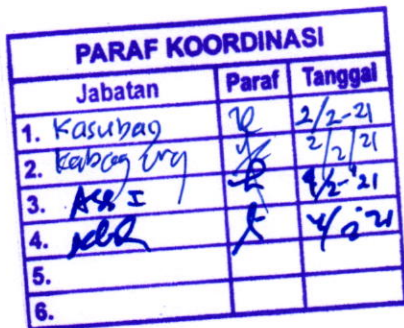 PARAF KOORDINASI
Jabatan Paraf Tanggal
1. Kasubag 2/2-21
2. Kabag org 2/2/21
3. Ass I 4/2-'21
4.
5.
6.